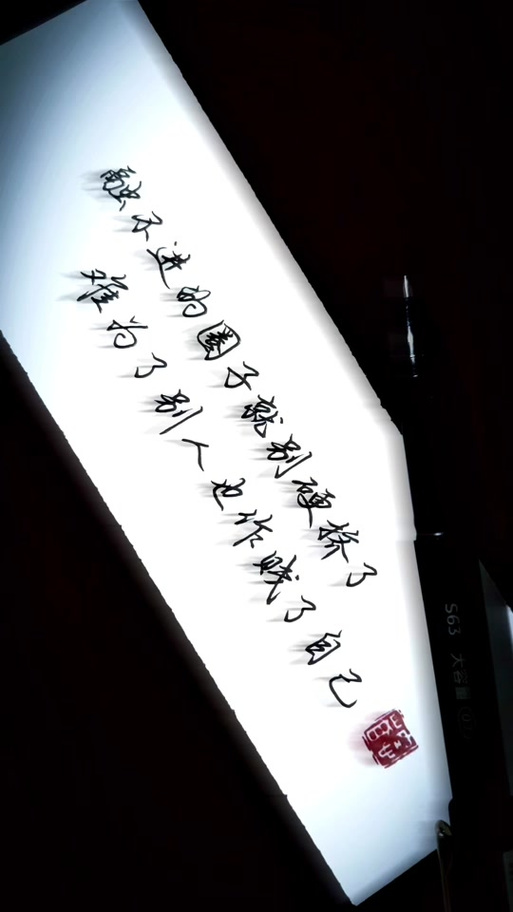 融不进的圈子就别硬挤了
难为了别人也作贱了自己
S63 大容量